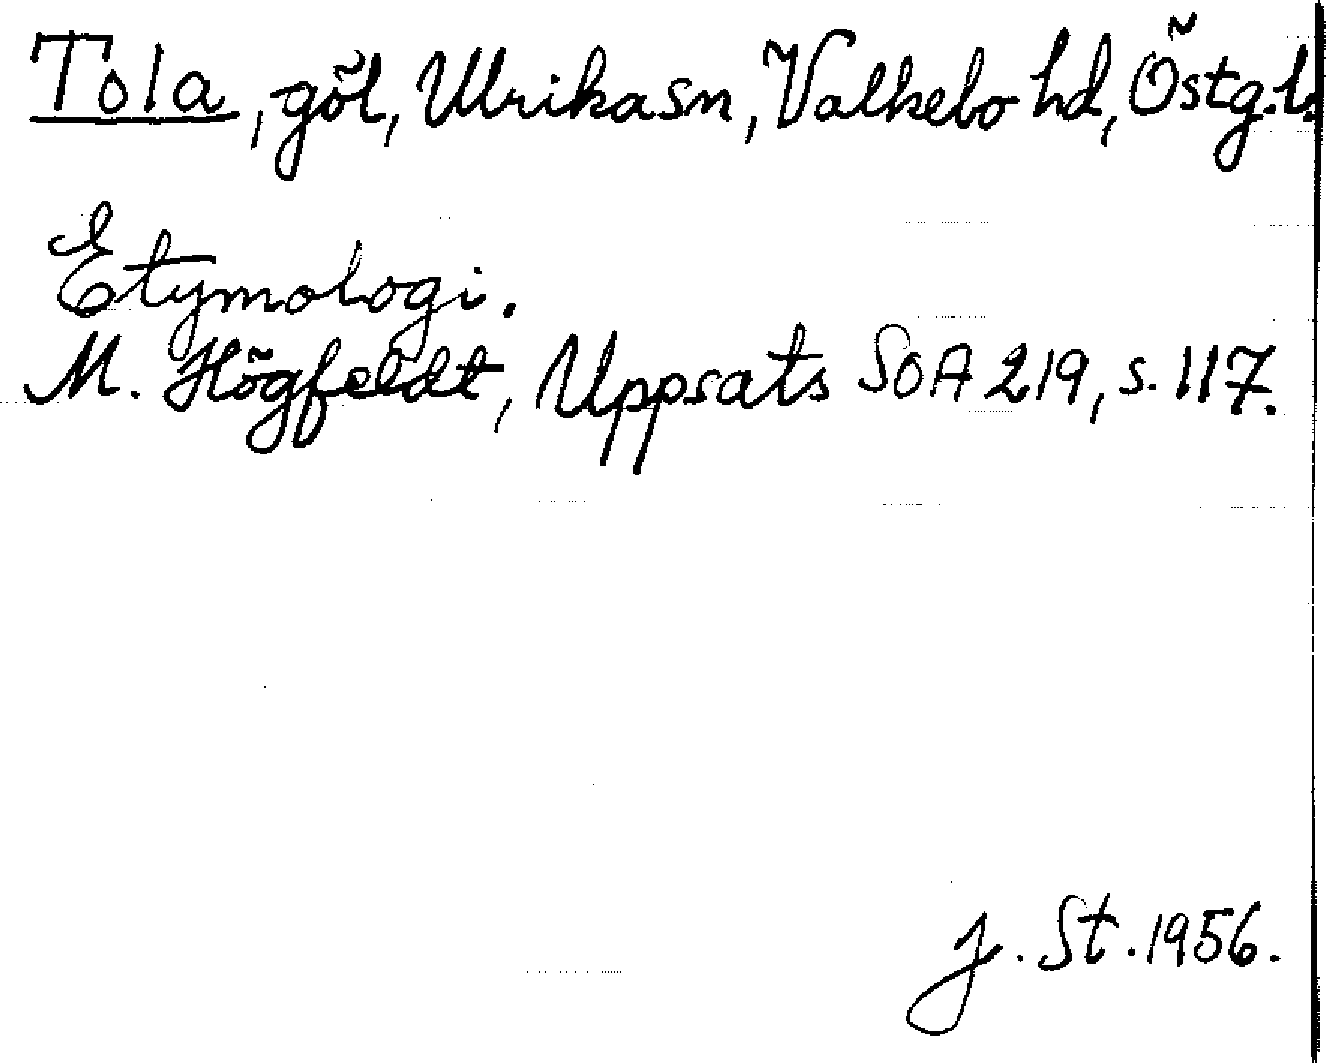 Tola, göl, Ulrika sn, Valkebo hd, Östg.l.
Etymologi.
M. Högfeldt, Uppsats SOA 219, s. 117.
J. St. 1956.